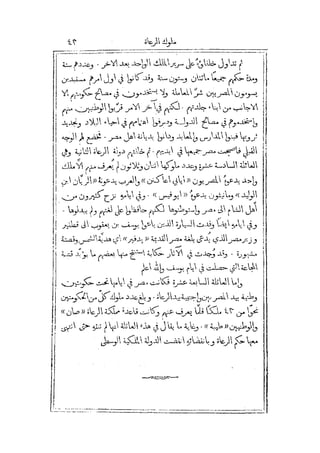 ملوك الرعاة ٤٣
ثم تداول خلفاؤه على سرير الملك الواحد بعد الآخر · وعددهم ستة
ومدة حكمهم جميعًا مائتان وستون سنة وقد كانوا في اول امرهم مستبدين
يسومون المصريين شر المعاملة ولا يستخدمون في مصالح حكومتهم الا
الاجانب من ابناء جلدتهم · لكنهم في آخر الامر قربوا الوطنيين منهم
واستخدموهم في مصالح الدولة وصرفوا اهتمامهم في احياء البلاد وتجديد
ثروتها فبنوا المدارس والمعابد ودانوا بديانة اهل مصر · فخضع لهم الوجه
القبلي فاصبحت مصر جميعها في ايديهم · ثم خلفتهم دولة الرعاة الثانية وهي
العائلة السادسة عشرة وعدد ملوكها اثنان وثلاثون لم يعرف منهم الا ملك
واحد يدعوه المصريون «ابابي اعاكنن» والعرب يدعونه «الريان ابن
الوليد» ومانيثون يدعوه «ابوفيس» · وفي ايامه نزح كثيرون من
أهل الشام الى مصر واستوطنوها لكنهم حافظوا على لغتهم ولم يبدلوها ·
وفي ايامه ايضًا وفدت السيارة الذين باعوا يوسف بن يعقوب الى قطفير
وزير مصر الذي يدعى بلغة مصر القديمة «بدفير» اي هدية الشمس وقصته
مشهورة · وقد وجدت في الآثار حكاية استنتج منها بعضهم ما يؤيد قصة
المجاعة التي حصلت في ايام يوسف والله اعلم
وأما العائلة السابعة عشرة فكانت مصر في ايامها تحت حكومتين
وطنية بيد المصريين واجنبية بيد الرعاة · وبلغ عدد ملوك كل من الحكومتين
نحوًا من ٤٣ ملكًا قلما يعرف عنهم وكانت قاعدة مملكة الرعاة «صان»
والوطنيين «طيبة» · وغاية ما يقال في هذه العائلة انها لم تنته حتى انتهى
معها حكم الرعاة وبانقضائه انقضت الدولة الملكية الوسطى